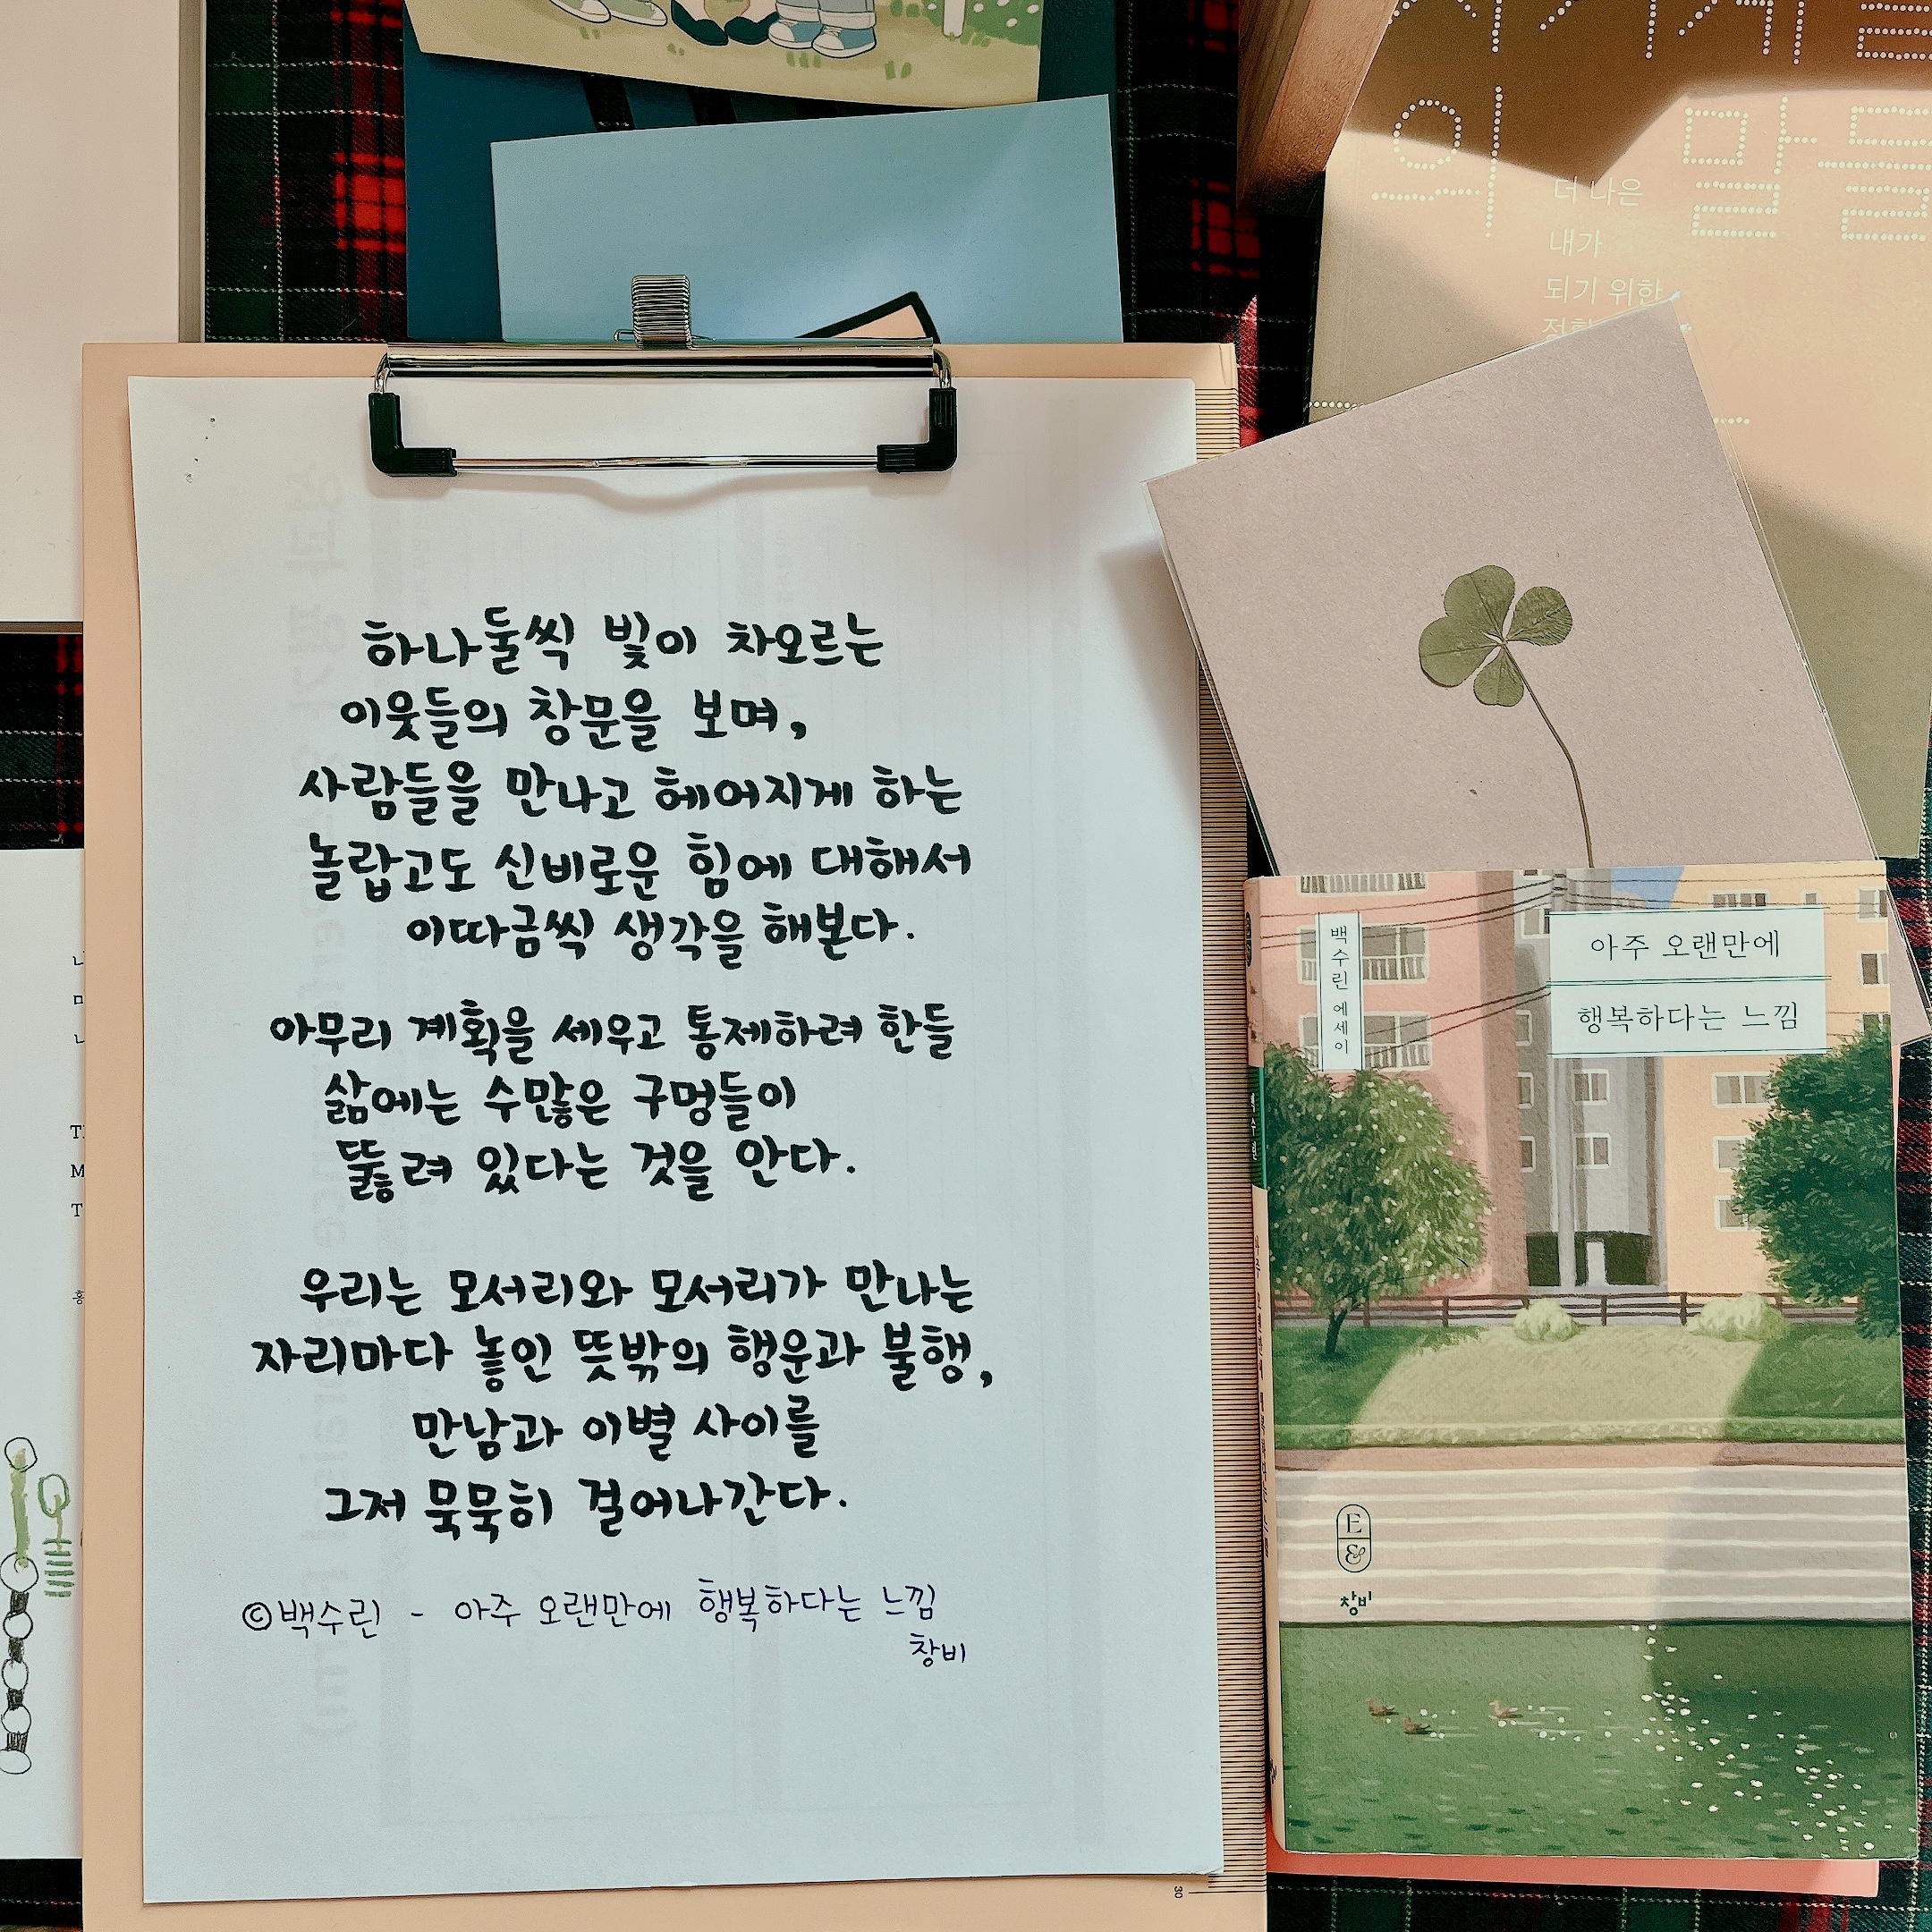 하나둘씩 빛이 차오르는
이웃들의 창문을 보며,
사람들을 만나고 헤어지게 하는
놀랍고도 신비로운 힘에 대해서
이따금씩 생각을 해본다.
아무리 계획을 세우고 통제하려 한들
삶에는 수많은 구멍들이
뚫려 있다는 것을 안다.
우리는 모서리와 모서리가 만나는
자리마다 놓인 뜻밖의 행운과 불행,
만남과 이별 사이를
그저 묵묵히 걸어나간다.
©백수린 - 아주 오랜만에 행복하다는 느낌
창비
의 말들
더 나은
내가
되기 위한
백수린 에세이
아주 오랜만에
행복하다는 느낌
E
&
창비
30